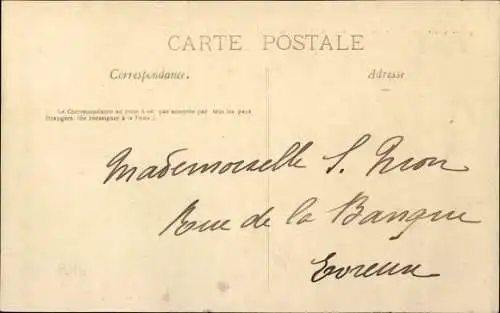 CARTE POSTALE
Correspondance.
Adresse
La Correspondance au recto n'est pas acceptée par tous les pays
étrangers. (Se renseigner à la Poste.)
Mademoiselle S.
Rue de la Banque
Evreux